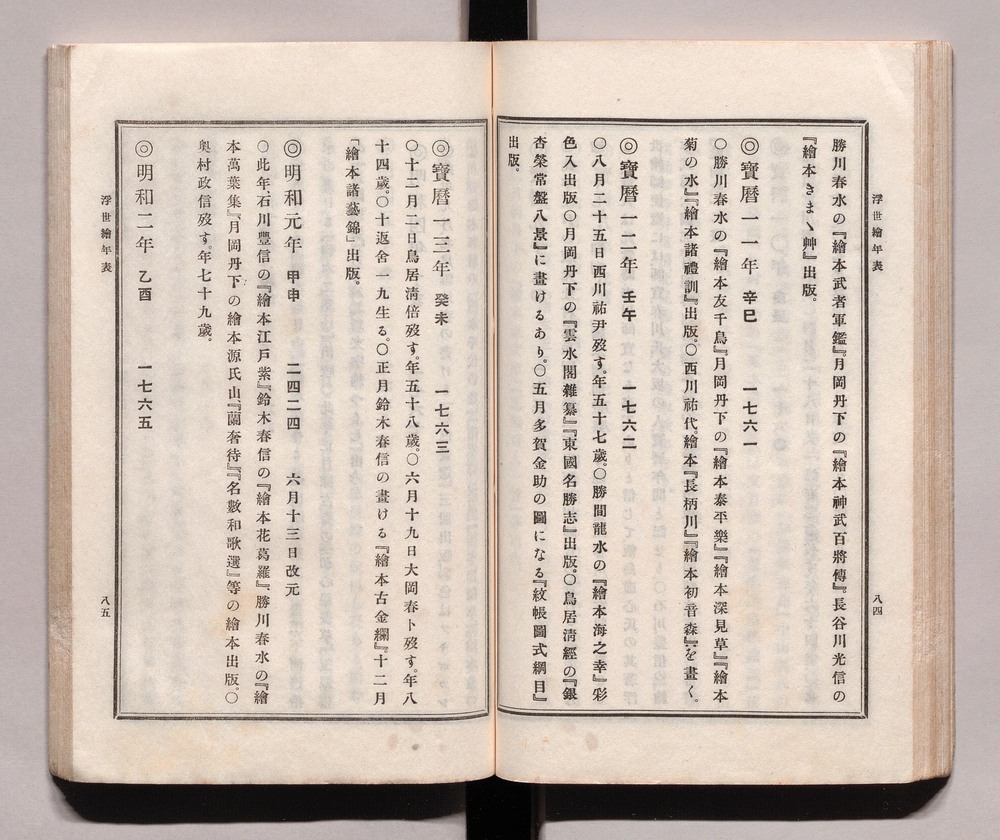 浮世繪年表
八四
勝川春水の『繪本武者軍鑑』月岡丹下の『繪本神武百將傳』。長谷川光信の
『繪本きまゝ艸』出版。
◎寶曆一一年 辛巳 一七六一
○勝川春水の『繪本友千鳥』月岡丹下の『繪本泰平樂』『繪本深見草』『繪本
菊の水』『繪本諸禮訓』出版。○西川祐代。繪本『長柄川』『繪本初音森』を畫く。
◎寶曆一二年 壬午 一七六二
○八月二十五日西川祐尹歿す。年五十七歲。○勝間龍水の『繪本海之幸』彩
色入出版○月岡丹下の『雲水閣雜纂』『東國名勝志』出版。○鳥居淸經の『銀
杏榮常盤八景』に畫けるあり。○五月多賀金助の圖になる『紋帳圖式綱目』
出版。
◎寶曆一三年 癸未 一七六三
○十二月二日鳥居淸倍歿す。年五十八歲。○六月十九日大岡春卜歿す。年八
十四歲。○十返舍一九生る。○正月鈴木春信の畫ける『繪本古金襴』。十二月
「繪本諸藝錦」出版。
◎明和元年 甲申 二四二四 六月十三日改元
○此年、石川豐信の『繪本江戸紫』『鈴木春信の『繪本花葛羅』、勝川春水の『繪
本萬葉集』『月岡丹下の繪本源氏山』『蘭奢待』『名數和歌選』等の繪本出版。○
奧村政信歿す。年七十九歲。
◎明和二年 乙酉 一七六五
浮世繪年表
八五